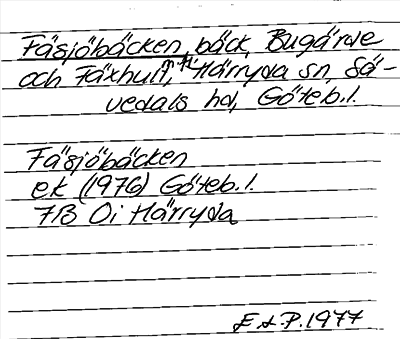 Fäsjöbäcken, bäck, Bugärde
och Fäxhult, m fl Härryda sn, Sä-
vedals hd, Göteb. l.
Fäsjöbäcken
ek (1976) Göteb. l.
7B Oi Härryda
E. & P. 1977